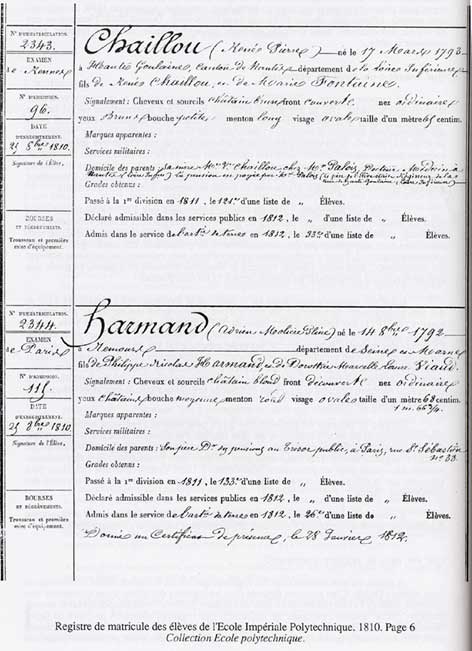 N° D'IMMATRICULATION.
2343.
EXAMEN
de Rennes
N° D'ADMISSION.
96.
DATE
D'ENREGISTREMENT.
25 8bre 1810.
Signature de l'Élève.
BOURSES
ET DÉGRÈVEMENTS.
Trousseau et première mise d'équipement.
Chaillou (Renés Pierre) né le 17 Mars 1793
à Haute Goulaine, Canton de Nantes département de la Loire Inférieure
fils de Renés Chaillou, et de Marie Fontaine
Signalement : Cheveux et sourcils châtain brun front couvert nez ordinaire
yeux bruns bouche petite menton long visage ovale taille d'un mètre 65 centim.
Marques apparentes :
Services militaires :
Domicile des parents : sa mère Mme Ve Chaillou chez Mr Palois, Docteur Médecin à
Nantes
Grades obtenus :
Passé à la 1re division en 1811, le 121e d'une liste de " Élèves.
Déclaré admissible dans les services publics en 1812, le " d'une liste de " Élèves.
Admis dans le service de l'artie de terre en 1812, le 33e d'une liste de " Élèves.
N° D'IMMATRICULATION.
2344.
EXAMEN
de Paris
N° D'ADMISSION.
115.
DATE
D'ENREGISTREMENT.
25 8bre 1810.
Signature de l'Élève.
BOURSES
ET DÉGRÈVEMENTS.
Trousseau et première mise d'équipement.
Harmand (Adrien) né le 14 8bre 1792
à Nemours département de Seine et Marne
fils de Philippe Nicolas Harmand, et de Dorothée Marcelle Laure Viaud
Signalement : Cheveux et sourcils châtain blond front découvert nez ordinaire
yeux châtains bouche moyenne menton rond visage ovale taille d'un mètre 68 centim.
1 m. 66 3/4
Marques apparentes :
Services militaires :
Domicile des parents : Son père au Trésor public, à Paris, rue St Sébastien
n° 33.
Grades obtenus :
Passé à la 1re division en 1811, le 133e d'une liste de " Élèves.
Déclaré admissible dans les services publics en 1812, le " d'une liste de " Élèves.
Admis dans le service de l'artie de terre en 1812, le 26e d'une liste de " Élèves.
Donné un Certificat de présence, le 28 Janvier 1812.
Registre de matricule des élèves de l'Ecole Impériale Polytechnique. 1810. Page 6
Collection Ecole polytechnique.